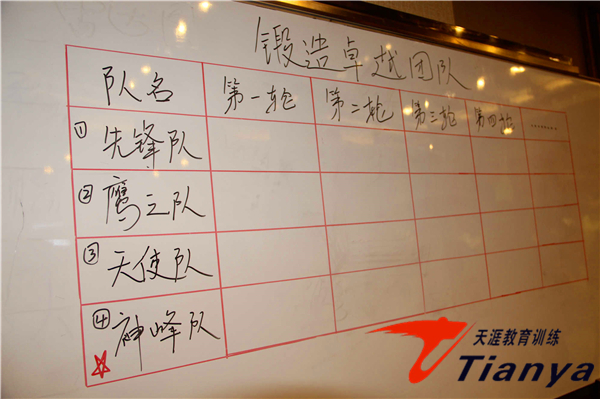 锻造卓越团队
队名 第一轮 第二轮 第三轮 第四轮
① 先锋队
② 鹰之队
③ 天使队
④ 神峰队
天涯教育训练
Tianya